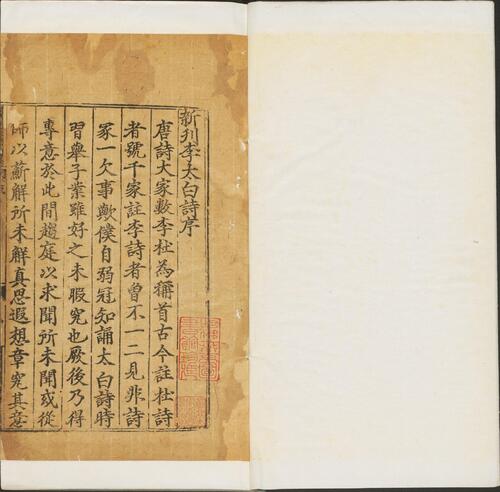 新刊李太白詩序
唐詩大家數李杜為稱首古今註杜詩
者號千家註李詩者曾不一二見非詩
家一欠事歟僕自弱冠知誦太白詩時
習舉子業雖好之未暇究也厥後乃得
專意於此間趨庭以求聞所未聞或從
師以蘄解所未解真思遐想章究其意